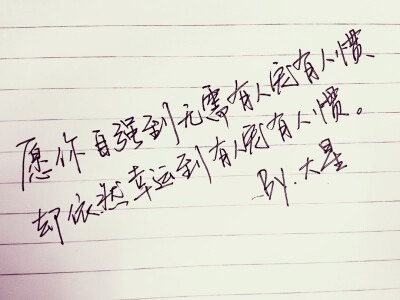 愿你自强到无需有人宠有人惯
却依然幸运到有人宠有人惯。
By.大星